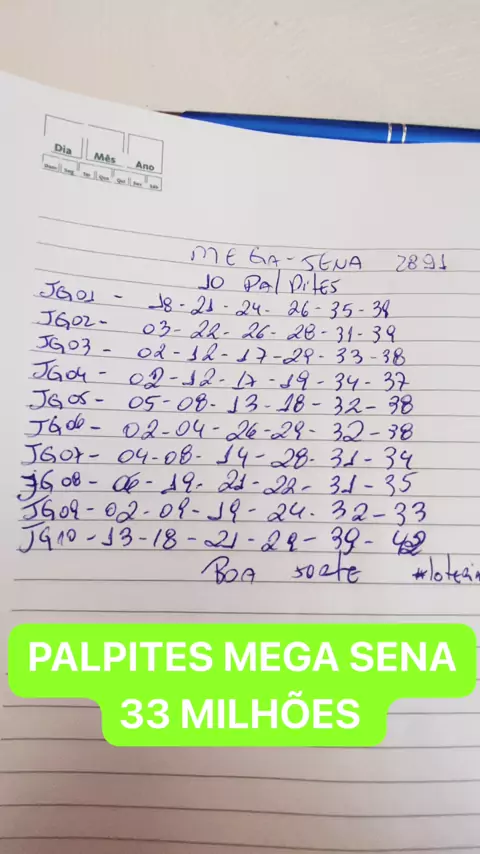 Dia Mês Ano
Dom Seg Ter Qua Qui Sex Sáb
MEGA-SENA 2891
10 PALPITES
JG01 - 18-21-24-26-35-39
JG02- 03-22-26-28-31-39
JG03 - 02-12-17-29-33-38
JG04 - 02-12-17-19-34-37
JG05- 05-08-13-18-32-38
JG06- 02-04-26-29-32-38
JG07- 04-08-14-28-31-34
JG08- 06-19-21-22-31-35
JG09-02-09-19-24-32-33
JG10-13-18-21-29-39-42
BOA SORTE #loteria
PALPITES MEGA SENA
33 MILHÕES